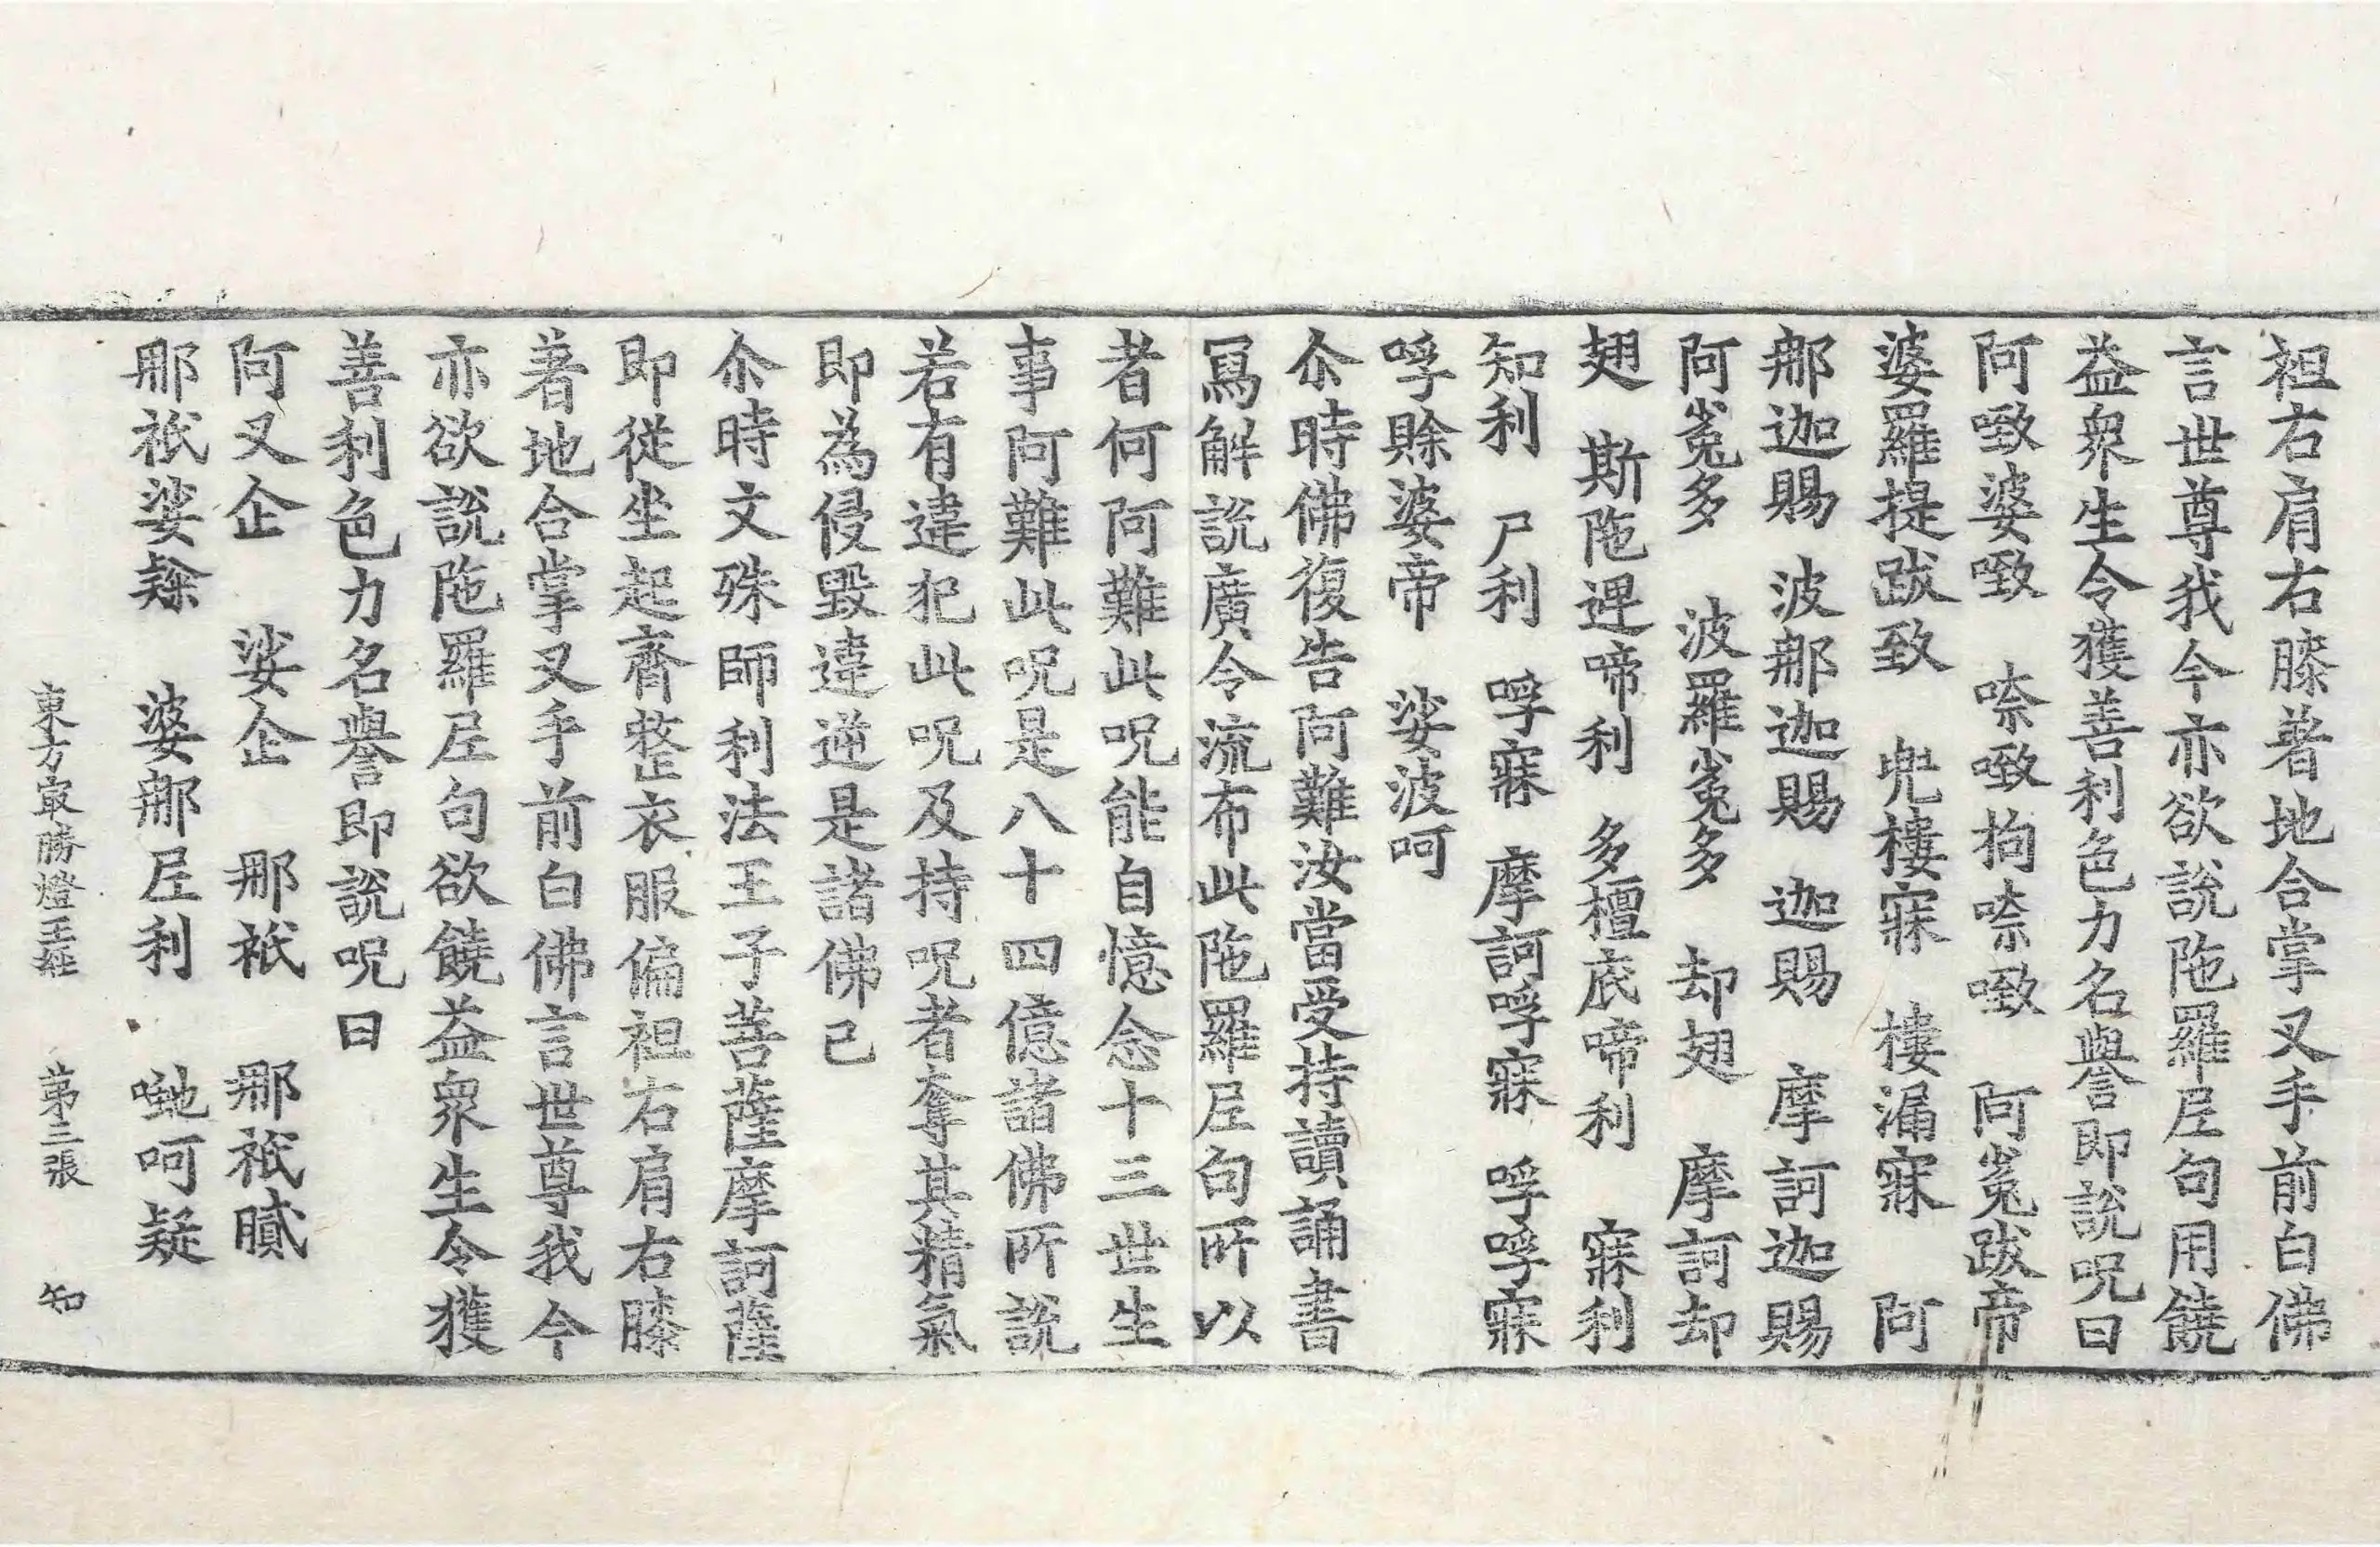 袒右肩右膝著地合掌叉手前白佛
言世尊我今亦欲說陁羅𡰱句用饒
益衆生令獲善利色力名譽即說呪曰
阿㘉婆㘉 㗇㘉拘㗇㘉 阿㝹跋帝
婆羅提跋致 兜樓寐 樓漏寐 阿
那迦賜 波那迦賜 迦賜 摩訶迦賜
阿㝹多 波羅㝹多 却翅 摩訶却
翅 斯陁遟啼利 多檀底啼利 寐利
知利 尸利 㗖寐 摩訶㗖寐 㗖㗖寐
㗖賖婆帝 娑波呵
尒時佛復告阿難汝當受持讀誦書
冩解說廣令流布此陁羅𡰱句所以
者何阿難此呪能自憶念十三世生
事阿難此呪是八十四億諸佛所說
若有違犯此呪及持呪者奪其精氣
即為侵毀違逆是諸佛已
尒時文殊師利法王子菩薩摩訶薩
即從坐起齊整衣服偏袒右肩右膝
著地合掌叉手前白佛言世尊我今
亦欲說陁羅𡰱句欲饒益衆生令獲
善利色力名譽即說呪曰
阿叉企 娑企 那祇 那祇膩
那祇娑𩜁 婆那𡰱利 㘑呵疑
東方㝡勝燈王經 第三張 知